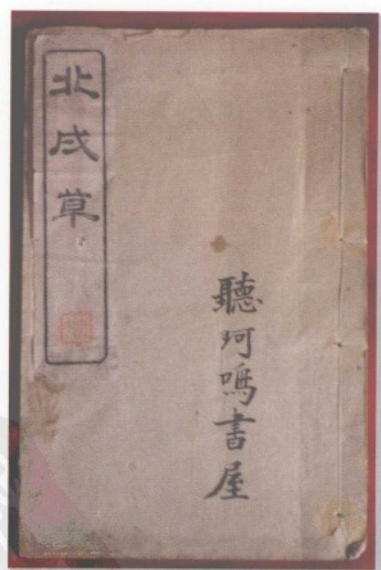 北戍草
聽珂鳴書屋